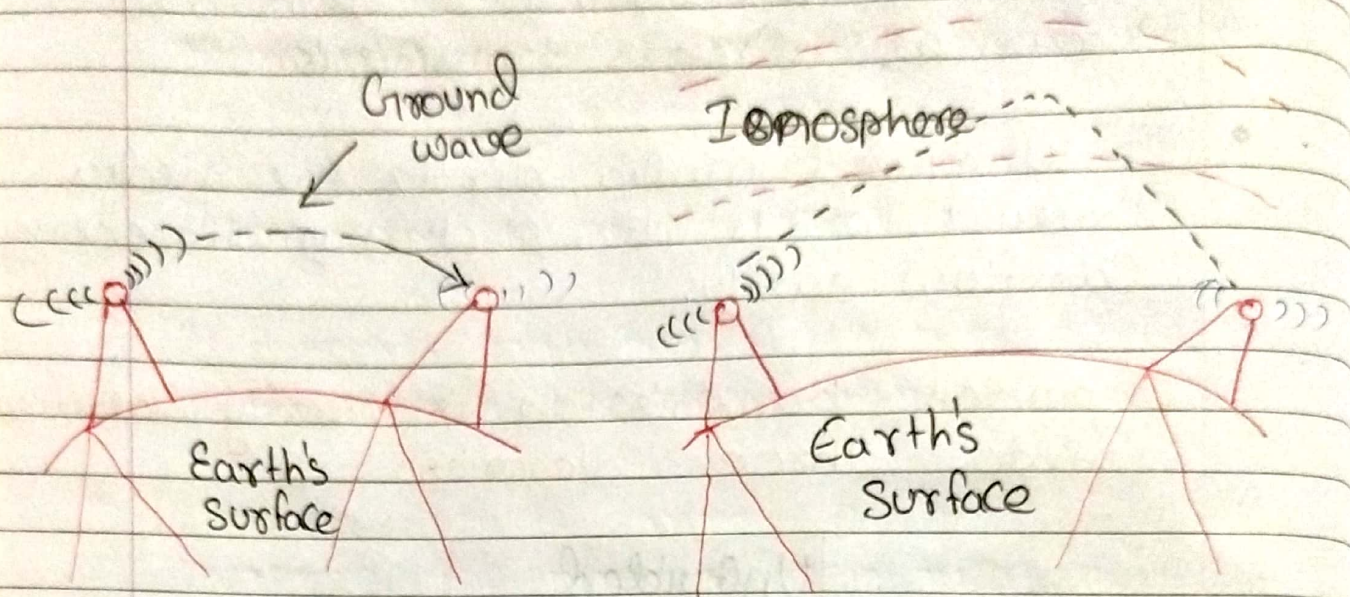 Ground
wave
Ionosphere
Earth's
Surface
Earth's
Surface